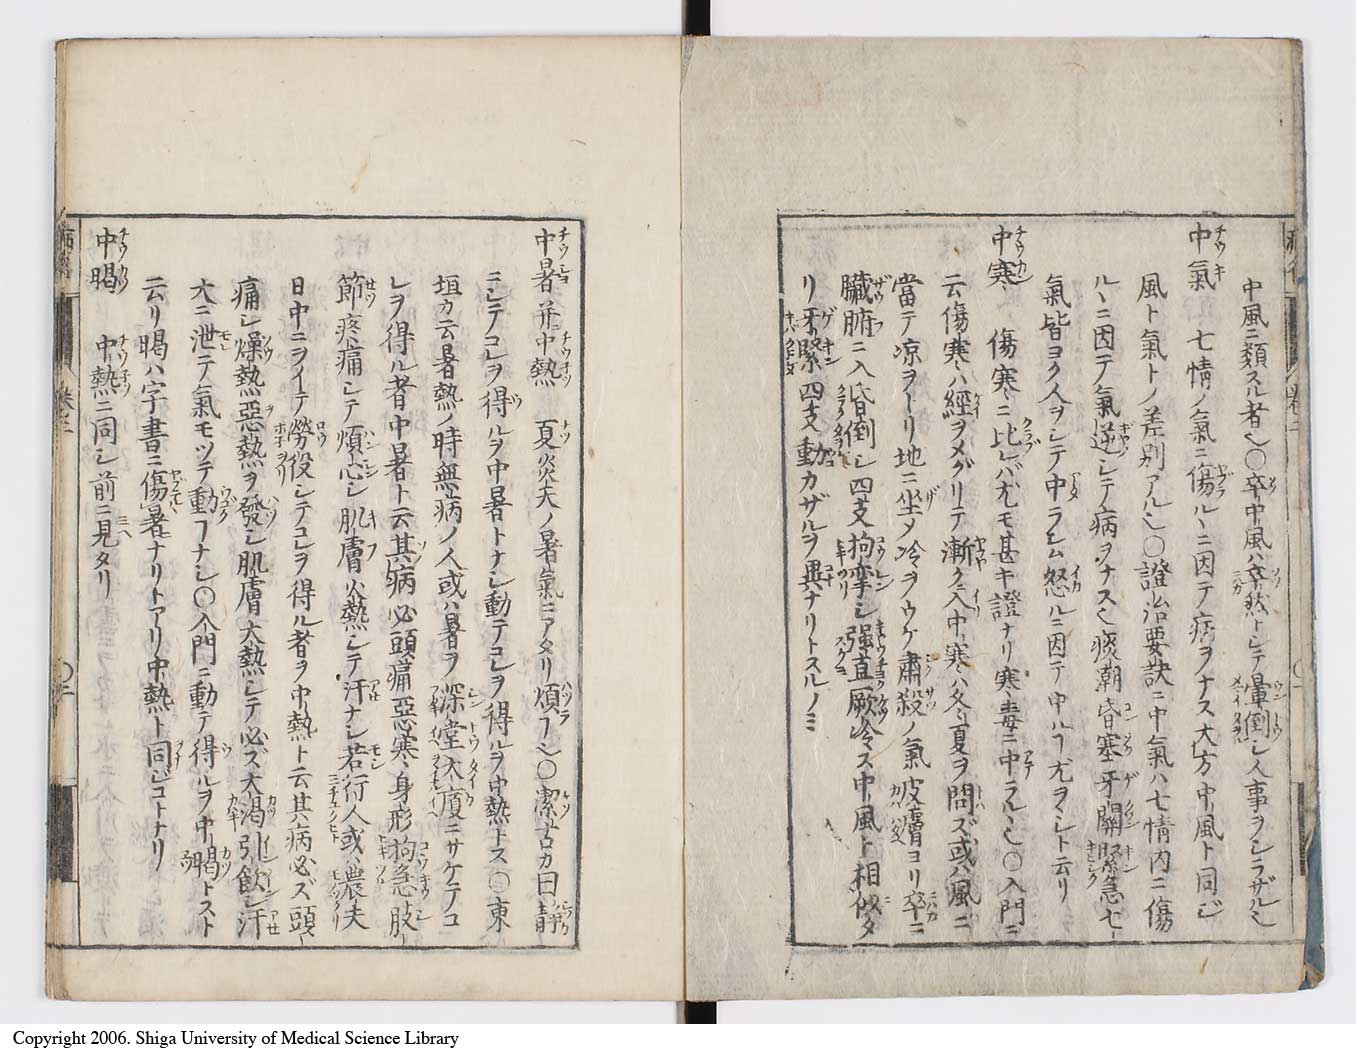 中風ニ類スル者也〇卒中風ハ卒然トシテ暈倒シ人事ヲシラザル也
中氣 七情ノ氣ニ傷ルヽニ因テ病ヲナス大方中風ト同ジ
風ト氣トノ差別アル也〇證治要訣ニ中氣ハ七情内ニ傷
ルヽニ因テ氣逆シテ病ヲナス也痰潮昏塞牙關緊急七
氣皆ヨク人ヲシテ中ラシム怒ルニ因テ中ルヿ尤ヲヽシト云リ
中寒 傷寒ニ比レバ尤モ甚キ證ナリ寒毒ニ中ラルヽ也〇入門ニ
云傷寒ハ經ヲメグリテ漸ク入中寒ハ冬夏ヲ問ズ或ハ風ニ
當テ凉ヲトリ地ニ坐メ冷ヲウケ肅殺ノ氣皮膚ヨリ卒ニ
臟腑ニ入昏倒シ四支拘攣シ强直厥冷ス中風ト相似タ
リ牙緊四支動カザルヲ異ナリトスルノミ
中暑并中熱 夏炎天ノ暑氣ニアタリ煩フ也〇潔古カ曰静
ニシテコレヲ得ルヲ中暑トナシ動テコレヲ得ルヲ中熱トス〇東
垣カ云暑熱ノ時無病ノ人或ハ暑ヲ深堂大厦ニサケテコ
レヲ得ル者中暑ト云其病必頭痛惡寒身形拘急肢
節疼痛シテ煩心シ肌膚火熱シテ汗ナシ若行人或農夫
日中ニヲイテ勞役シテコレヲ得ル者ヲ中熱ト云其病必ズ頭
痛シ燥熱惡熱ヲ發シ肌膚大熱シテ必ズ大渇引飮シ汗
大ニ泄テ氣モツテ動クナシ〇入門ニ動テ得ルヲ中暍トスト
云リ暍ハ字書ニ傷暑ナリトアリ中熱ト同ジコトナリ
中暍 中熱ニ同シ前ニ見タリ
Copyright 2006. Shiga University of Medical Science Library